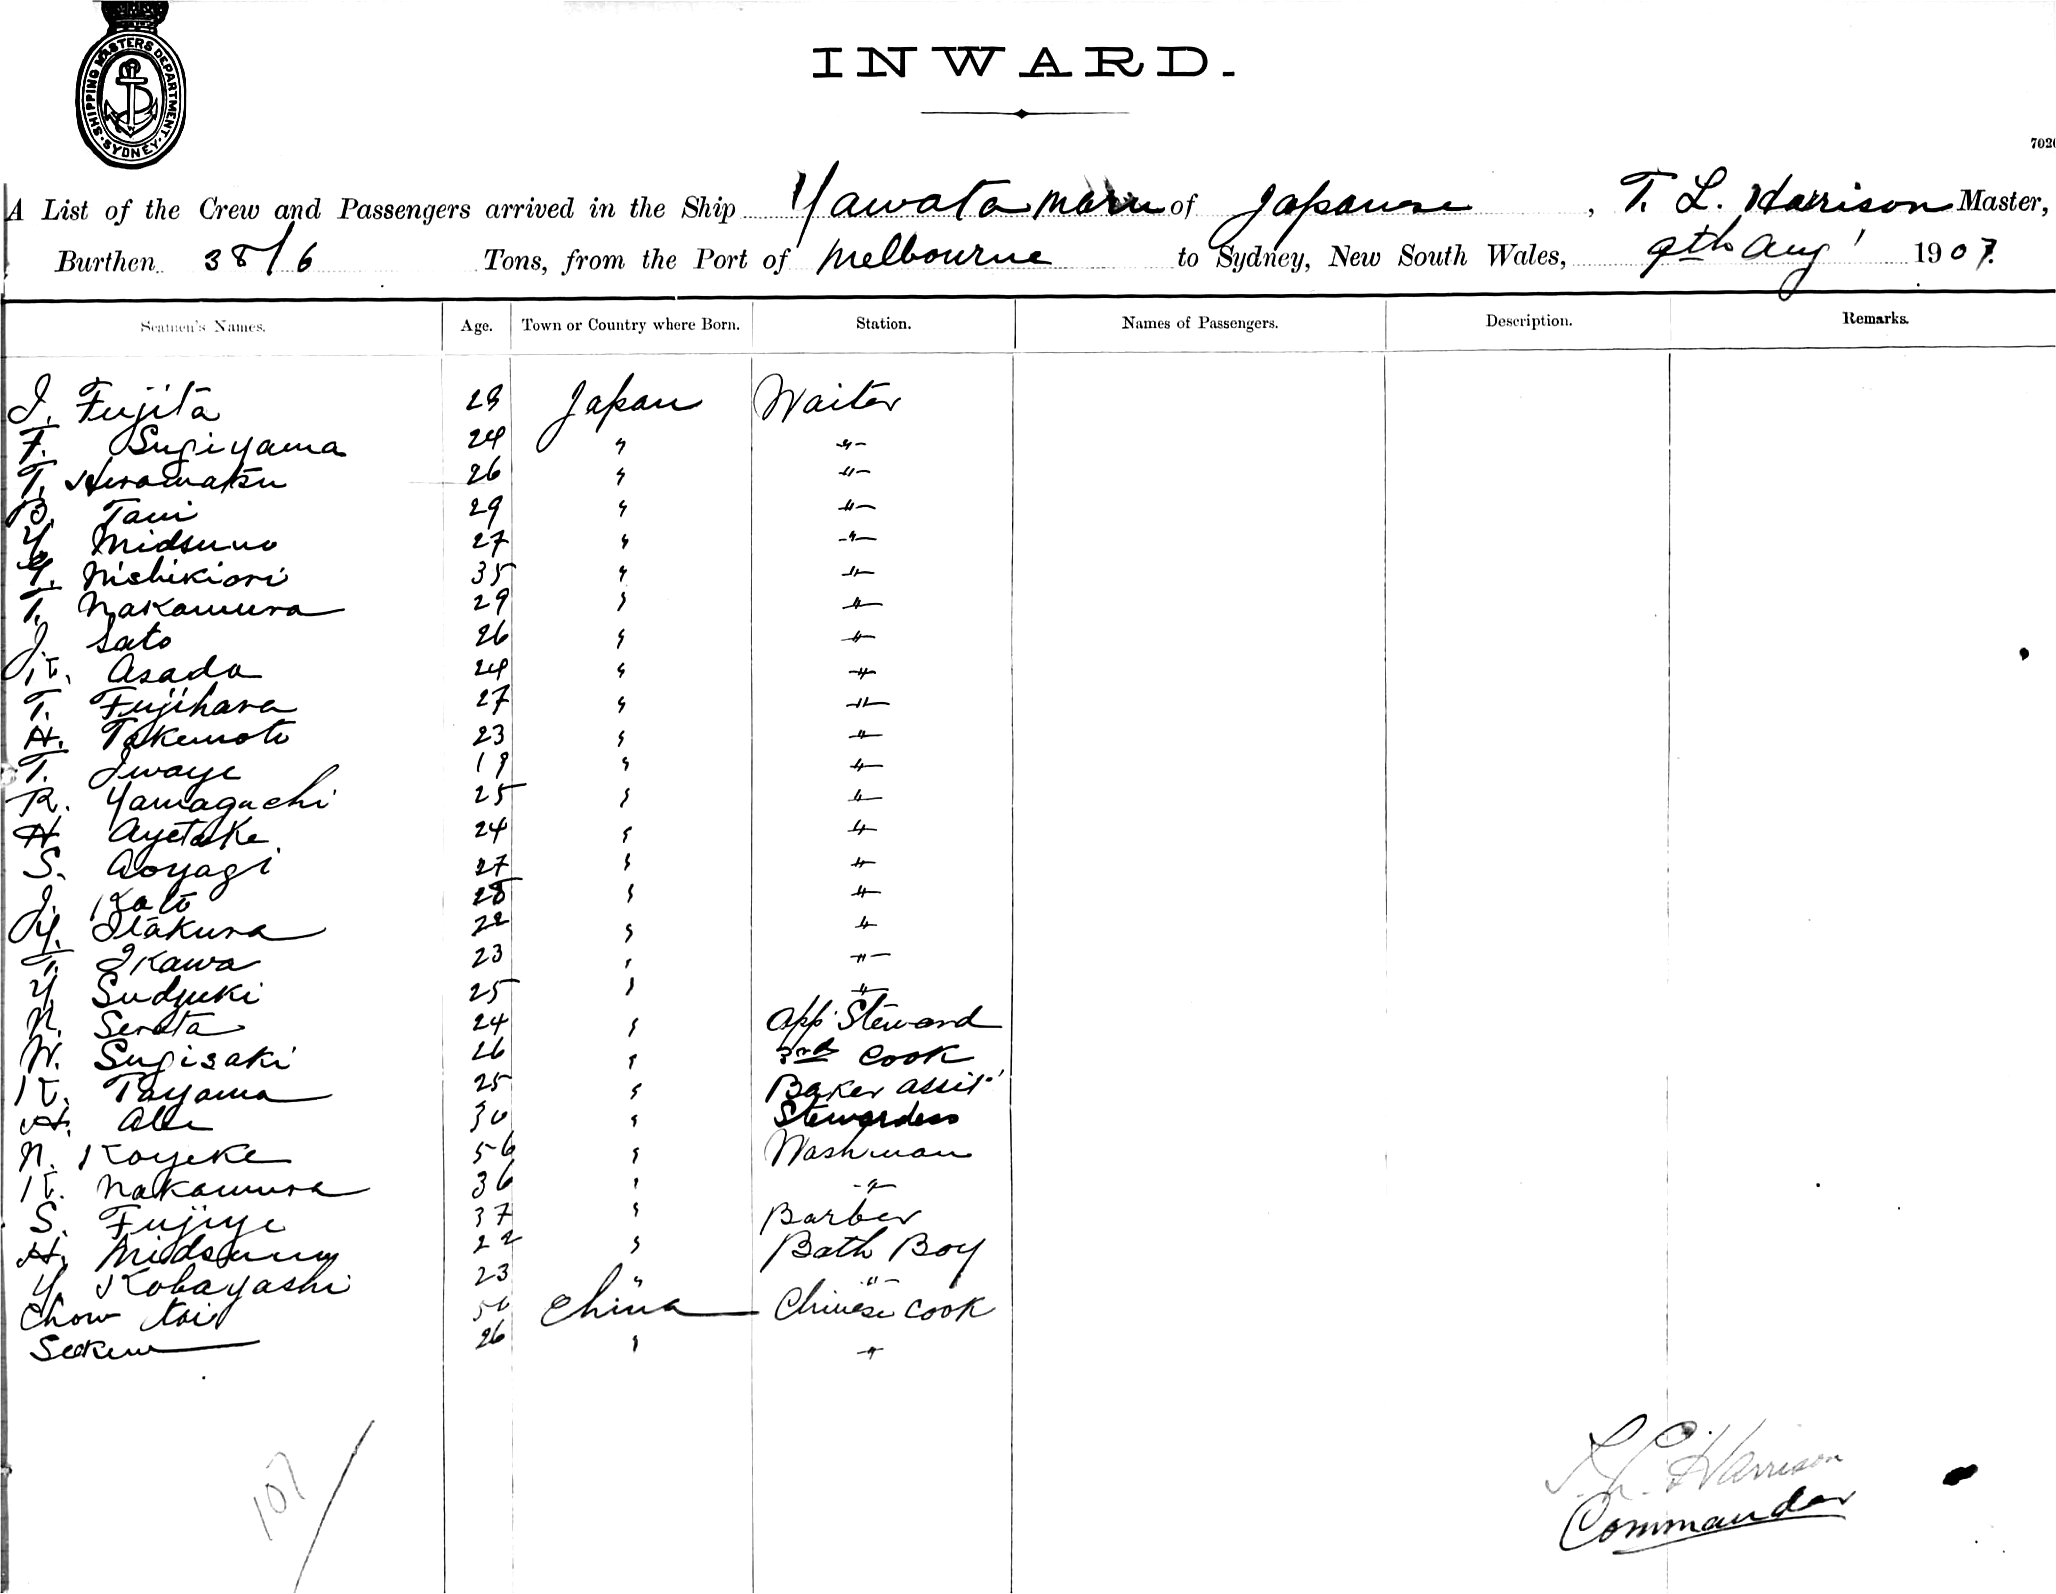 SHIPPING MASTERS DEPARTMENT
SYDNEY
INWARD.
7020
A List of the Crew and Passengers arrived in the Ship Yawata Maru of Japanese, T. L. Harrison Master,
Burthen 3816 Tons, from the Port of Melbourne to Sydney, New South Wales, 9th Aug' 1907.
Seamen's Names. Age. Town or Country where Born. Station. Names of Passengers. Description. Remarks.
J. Fujita Japan Waiter
F. Sugiyama 24 " "
T. Hiramatsu 26 " "
B. Tani 29 " "
Y. Midsuno 27 " "
Y. Nishikiori 35 " "
T. Nakamura 29 " "
J. Sato 26 " "
K. Asada 24 " "
T. Fujihara 27 " "
H. Takemoto 23 " "
T. Iwaye 19 " "
R. Yamaguchi 25 " "
H. Ayetake 24 " "
S. Aoyagi 27 " "
J. Kato 28 " "
Y. Itakura 22 " "
T. Ikawa 23 " "
Y Sudzuki 25 " "
N. Serata 24 " App. Steward
W. Sugisaki 26 " 3rd Cook
K. Tayama 25 " Baker assit'
H. Abe 30 " Stewardess
N. Koyeke 56 " Washman
K. Nakamura 36 " "
S. Fujiye 37 " Barber
H. Midsuno 22 " Bath Boy
Y. Kobayashi 23 " "
Chow Chinese cook
China
26 " "
107
T. L. Harrison
Commander